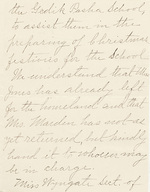 the Gedik Pasha School,
to assist them in the
preparing of Christmas
festivities for the School.
We understand that Mr.
Jones has already left
for the homeland and that
Mrs. Marden has not as
yet returned, but kindly
hand it to whoever may
be in charge.
Miss Wingate Sect. of